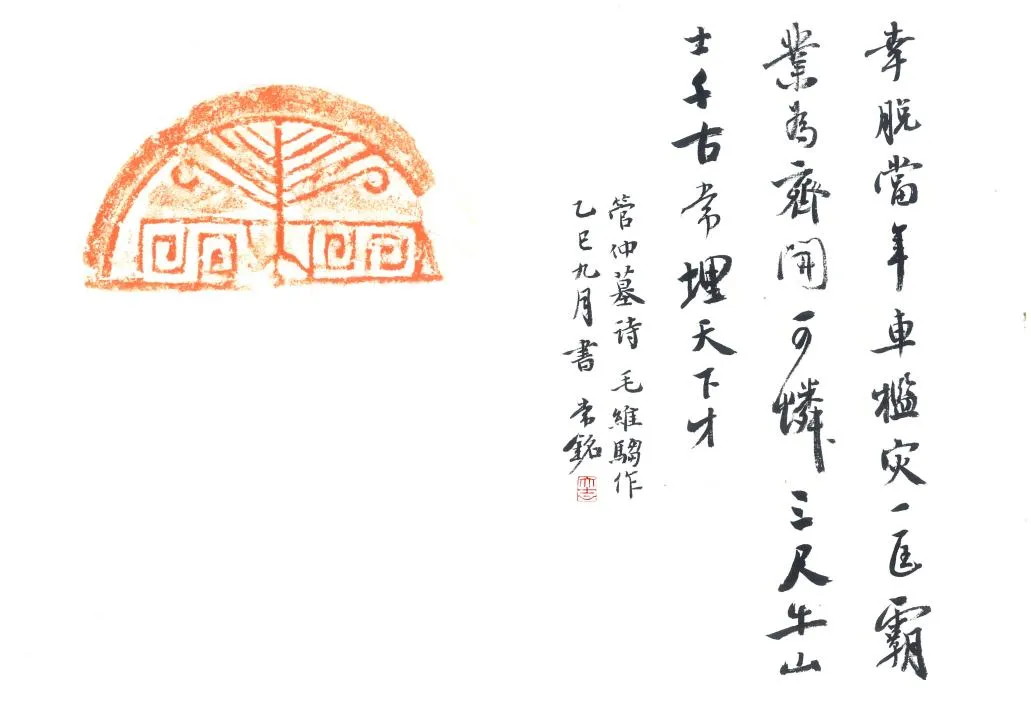 幸脱當年車檻灾一匡霸
業為齊開可憐三尺牛山
士千古常埋天下才
管仲墓诗 毛維騶作
乙巳九月書 常銘